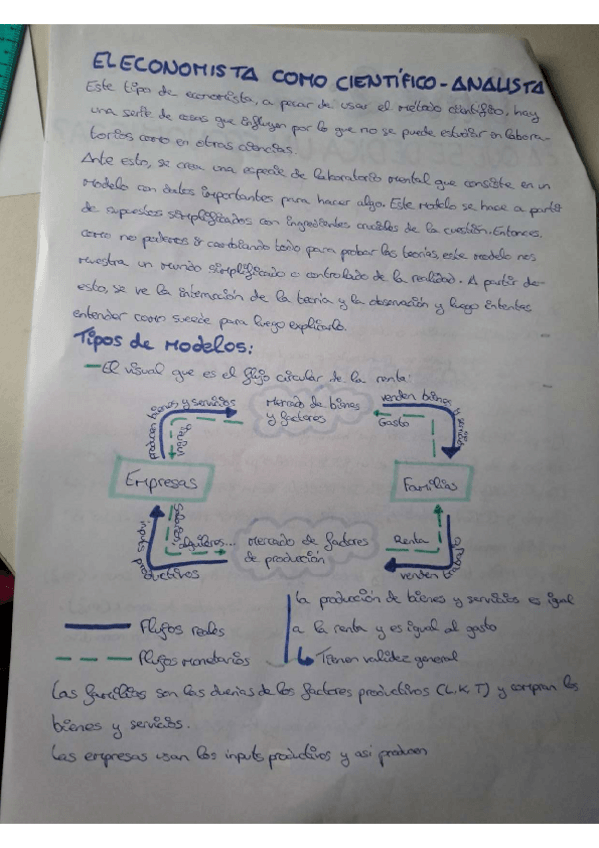 EL ECONOMISTA COMO CIENTÍFICO-ANALISTA
Este tipo de economista, a pesar de usar el método científico, hay
una serie de cosas que influyen por lo que no se puede estudiar en labora-
torios como en otras ciencias.
Ante esto, se crea una especie de laboratorio mental que consiste en un
modelo con datos importantes para hacer algo. Este modelo se hace a partir
de supuestos simplificados con ingredientes cruciales de la cuestión. Entonces,
como no podemos ir cambiando todo para probar las teorías, este modelo nos
muestra un mundo simplificado o controlado de la realidad. A partir de
esto, se ve la interacción de la teoría y la observación y luego intentas
entender como sucede para luego explicarlo.
Tipos de modelos:
— El visual que es el flujo circular de la renta:
producen bienes y servicios
Mercado de bienes
y factores
venden bienes y servicios
Gasto
Empresas
Familias
Salarios, alquileres...
Mercado de factores
de producción
Renta
inputs productivos
venden
Flujos reales
Flujos monetarios
La producción de bienes y servicios es igual
a la renta y es igual al gasto
Tienen validez general
Las familias son las dueñas de los factores productivos (L, K, T) y compran los
bienes y servicios.
Las empresas usan los inputs productivos y asi producen